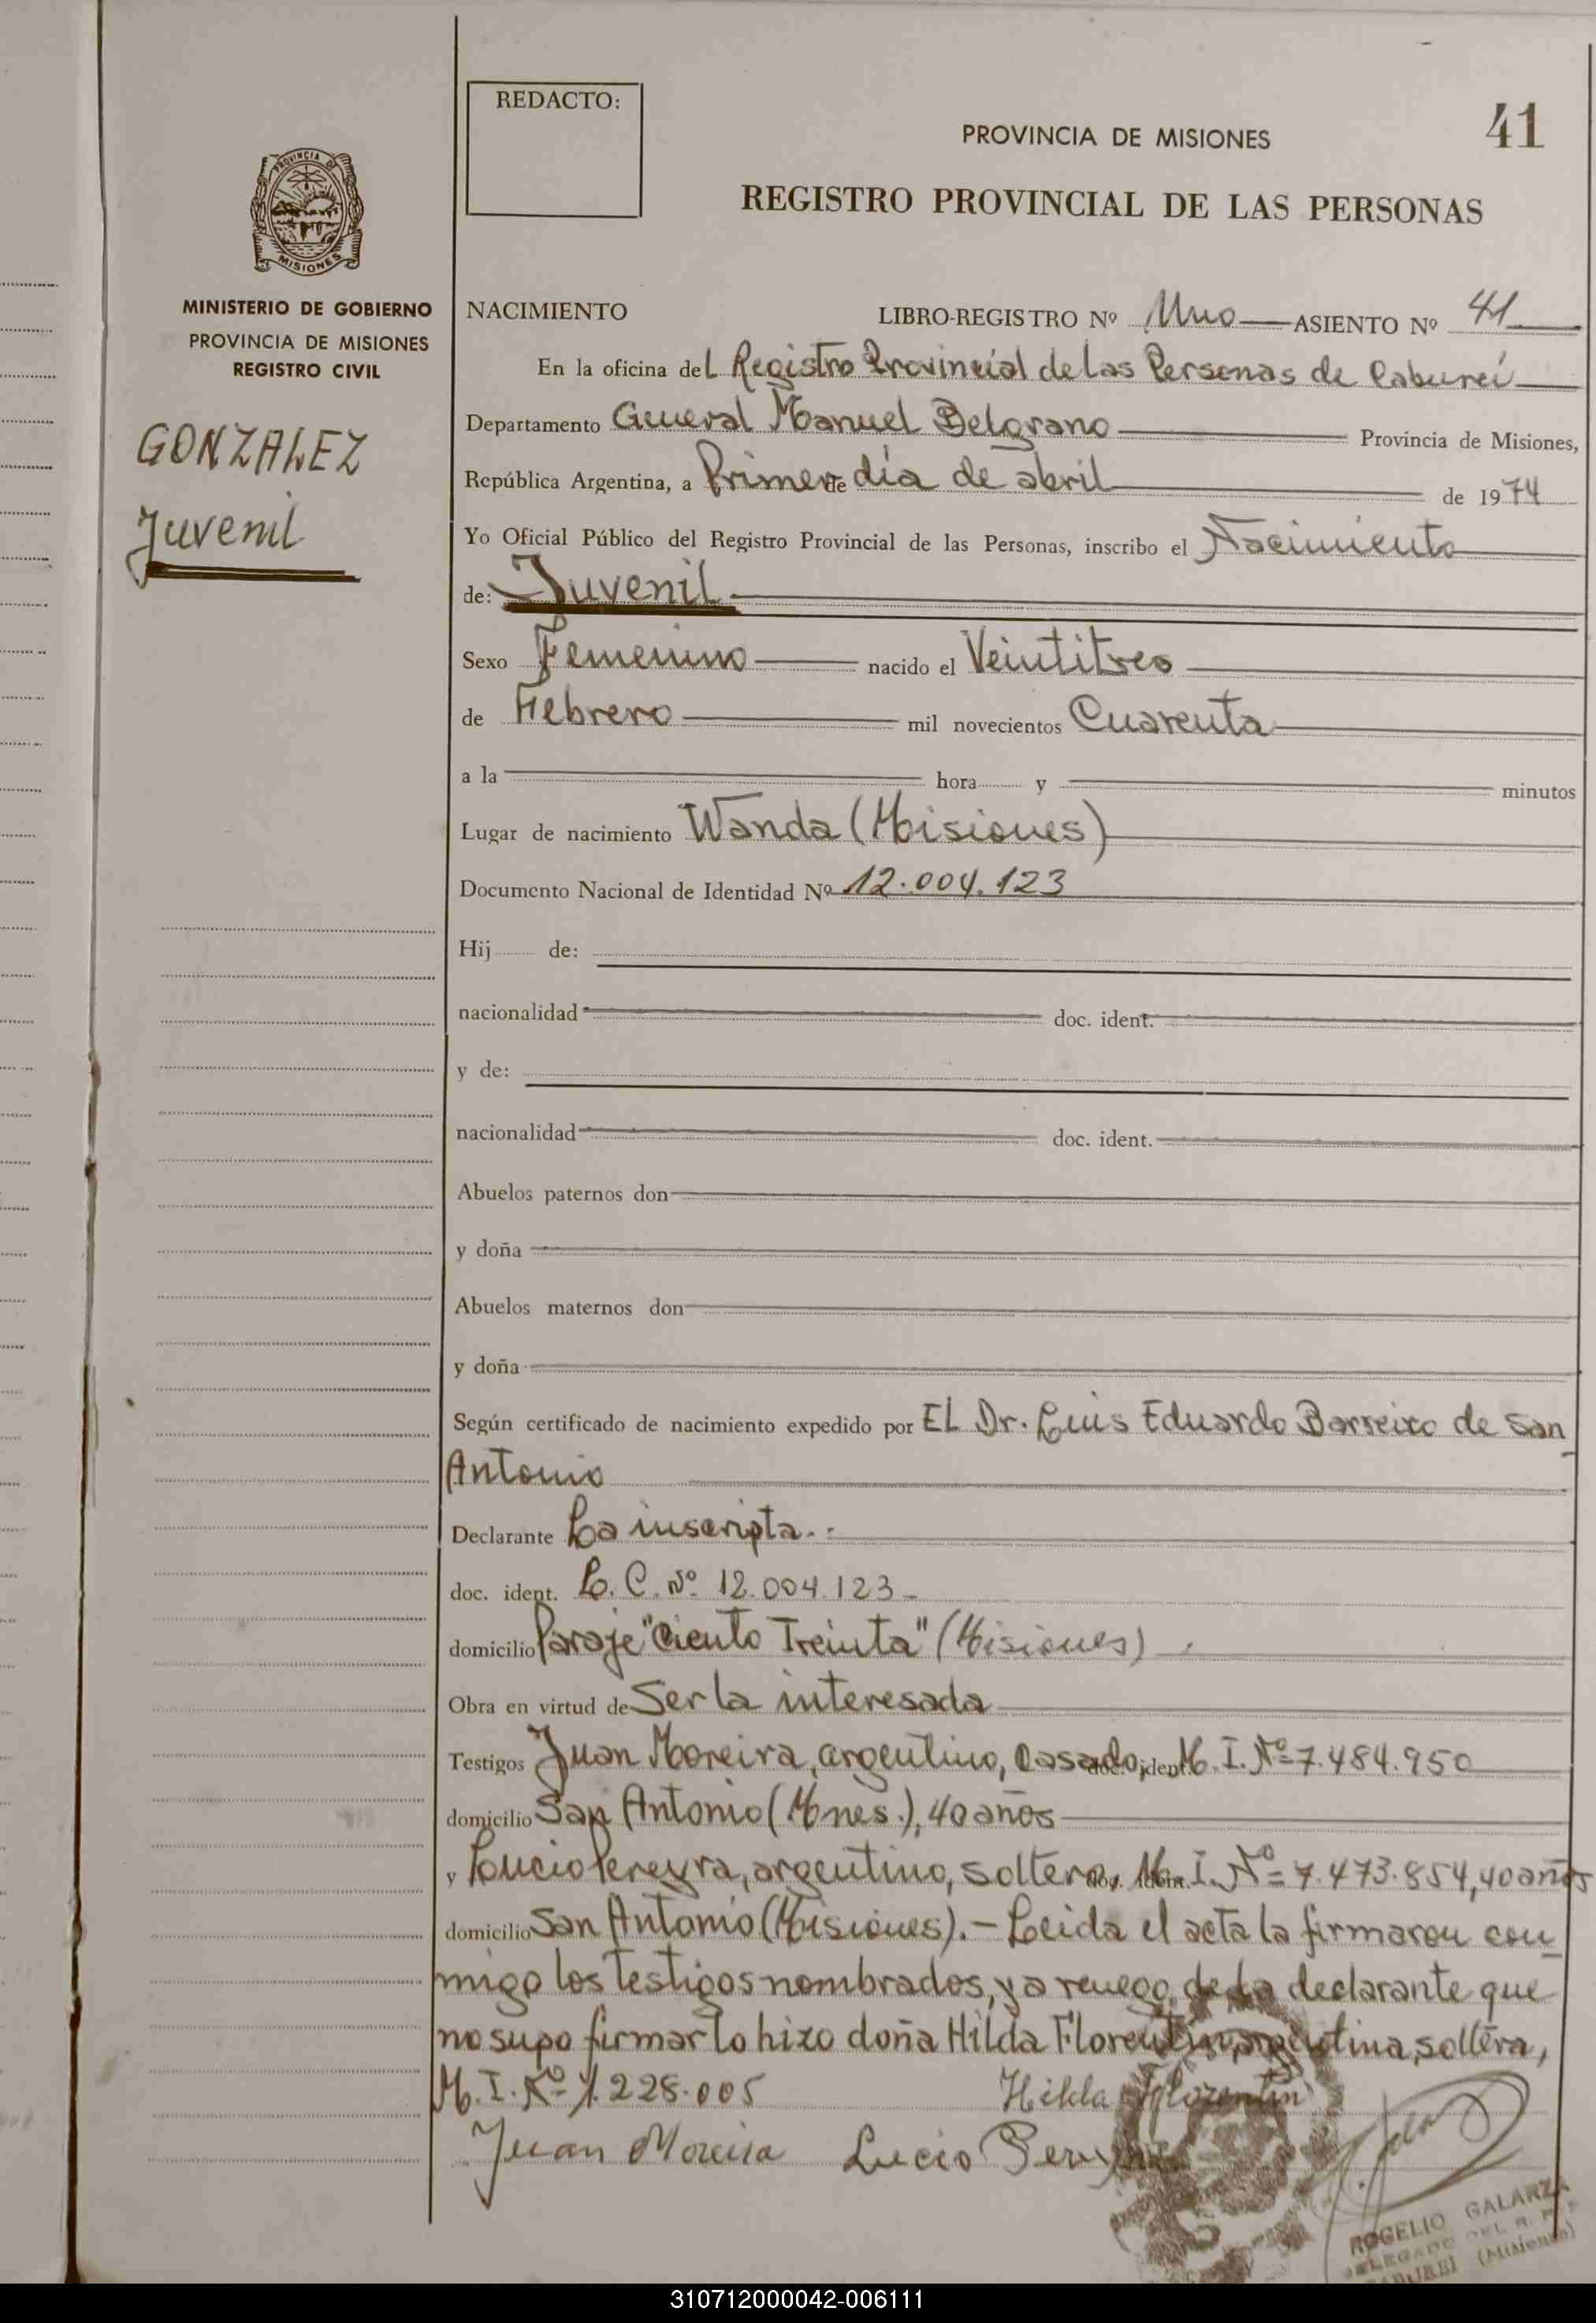 REDACTO:
41
PROVINCIA DE MISIONES
REGISTRO PROVINCIAL DE LAS PERSONAS
PROVINCIA DE
MISIONES
MINISTERIO DE GOBIERNO
PROVINCIA DE MISIONES
REGISTRO CIVIL
GONZALEZ
Juvenil
NACIMIENTO LIBRO-REGISTRO Nº Uno ASIENTO Nº 41
En la oficina del Registro Provincial de las Personas de Caburei
Departamento General Manuel Belgrano Provincia de Misiones,
República Argentina, a Primer de día de abril de 1974
Yo Oficial Público del Registro Provincial de las Personas, inscribo el Nacimiento
de: Juvenil
Sexo Femenino nacido el Veintitres
de Febrero mil novecientos Cuarenta
a la hora y minutos
Lugar de nacimiento Wanda (Misiones)
Documento Nacional de Identidad Nº 12.004.123
Hij de:
nacionalidad doc. ident.
y de:
nacionalidad doc. ident.
Abuelos paternos don
y doña
Abuelos maternos don
y doña
Según certificado de nacimiento expedido por EL Dr. Luis Eduardo Barreiro de San
Antonio
Declarante La inscripta..
doc. ident. L.C. Nº 12.004.123-
domicilio Paraje "Ciento Treinta" (Misiones).
Obra en virtud de Ser la interesada
Testigos Juan Moreira, argentino, casado, doc. ident. M.I.Nº=7.484.950
domicilio San Antonio (Mnes.), 40 años
y Lucio Pereyra, argentino, soltero, doc. ident. M.I.Nº=7.473.854, 40 años
domicilio San Antonio (Misiones).- Leida el acta la firmaron con
migo los testigos nombrados, y a ruego de la declarante que
no supo firmar lo hizo doña Hilda Florentin, argentina, soltera,
M.I.Nº 1.228.005 Hilda Florentin
Juan Moreira Lucio Pereyra
ROGELIO GALARZA
DELEGADO DEL R.
(Misiones)
310712000042-006111